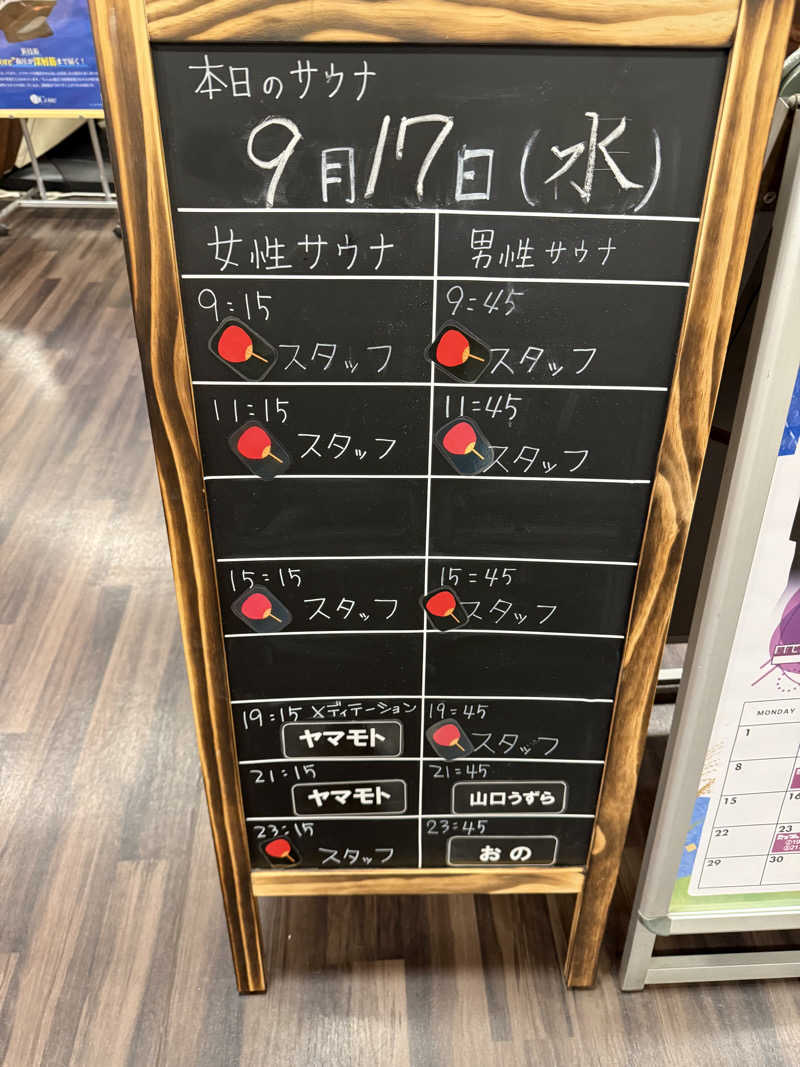 新技術
深部筋まで届く!
本日のサウナ
9月17日(水)
女性サウナ 男性サウナ
9:15 9:45
スタッフ スタッフ
11:15 11:45
スタッフ スタッフ
15:15 15:45
スタッフ スタッフ
19:15 メディテーション 19:45
ヤマモト スタッフ
21:15 21:45
ヤマモト 山口うずら
23:15 23:45
スタッフ おの
MONDAY
1
8
15 16
22 23
29 30